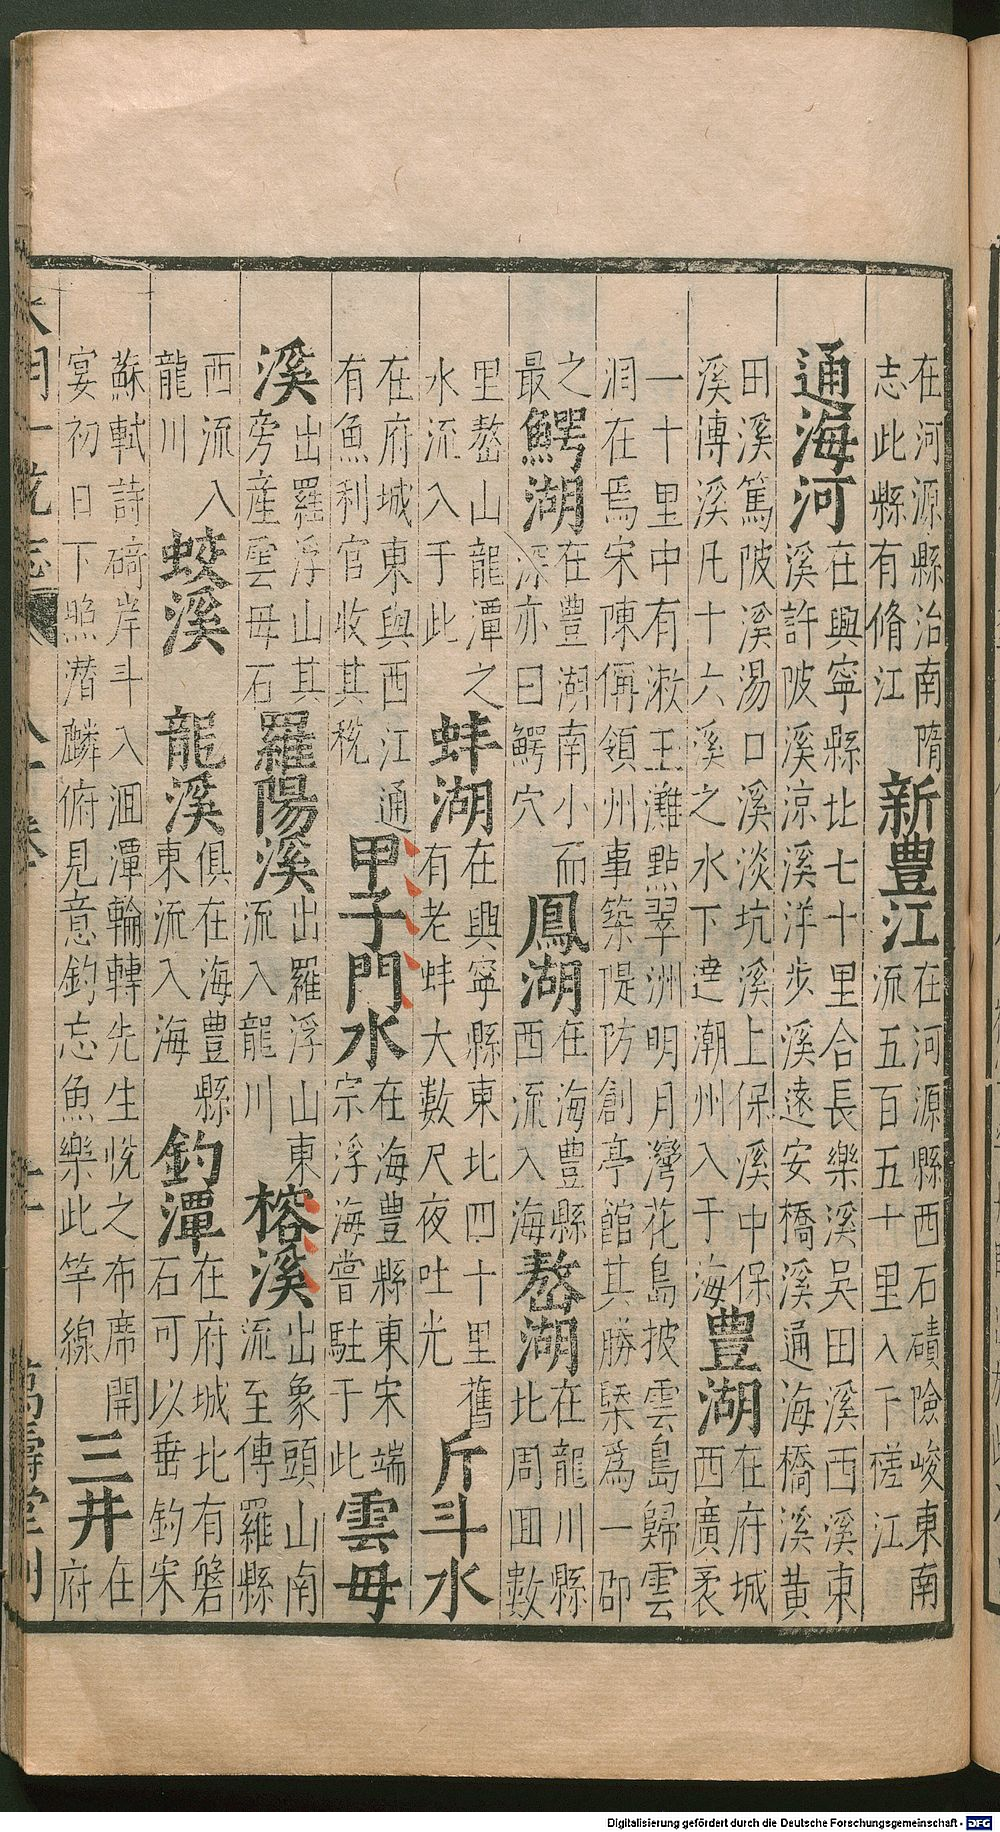 在河源縣治南隋
志此縣有脩江
新豊江
在河源縣西石磧險峻東南
流五百五十里入下槎江
通海河
在興寧縣北七十里合長樂溪吳田溪西溪東
溪許陂溪涼溪洋步溪遠安橋溪通海橋溪黃
田溪篤陂溪湯口溪淡坑溪上保溪中保
溪溥溪凡十六溪之水下達潮州入于海
豊湖
在府城
西廣袤
一十里中有漱玉灘點翠洲明月灣花島披雲島歸雲
洞在焉宋陳偁領州事築隄防創亭館其勝槩為一郡
之
最
鰐湖
在豊湖南小而
深亦曰鰐穴
鳳湖
在海豊縣
西流入海
嶅湖
在龍川縣
北周囬數
里嶅山龍潭之
水流入于此
蚌湖
在興寧縣東北四十里舊
有老蚌大數尺夜吐光
斤斗水
在府城東與西江通
有魚利官收其稅
甲子門水
在海豊縣東宋端
宗浮海嘗駐于此
雲母
溪
出羅浮山其
旁産雲母石
羅陽溪
出羅浮山東
流入龍川
榕溪
出象頭山南
流至傅羅縣
西流入
龍川
蛟溪
龍溪
俱在海豊縣
東流入海
釣潭
在府城北有磐
石可以垂釣宋
蘇軾詩碕岸斗入洄潭輪轉先生悅之布席開
宴初日下照潛鱗俯見意釣忘魚樂此竿線
三井
在
府